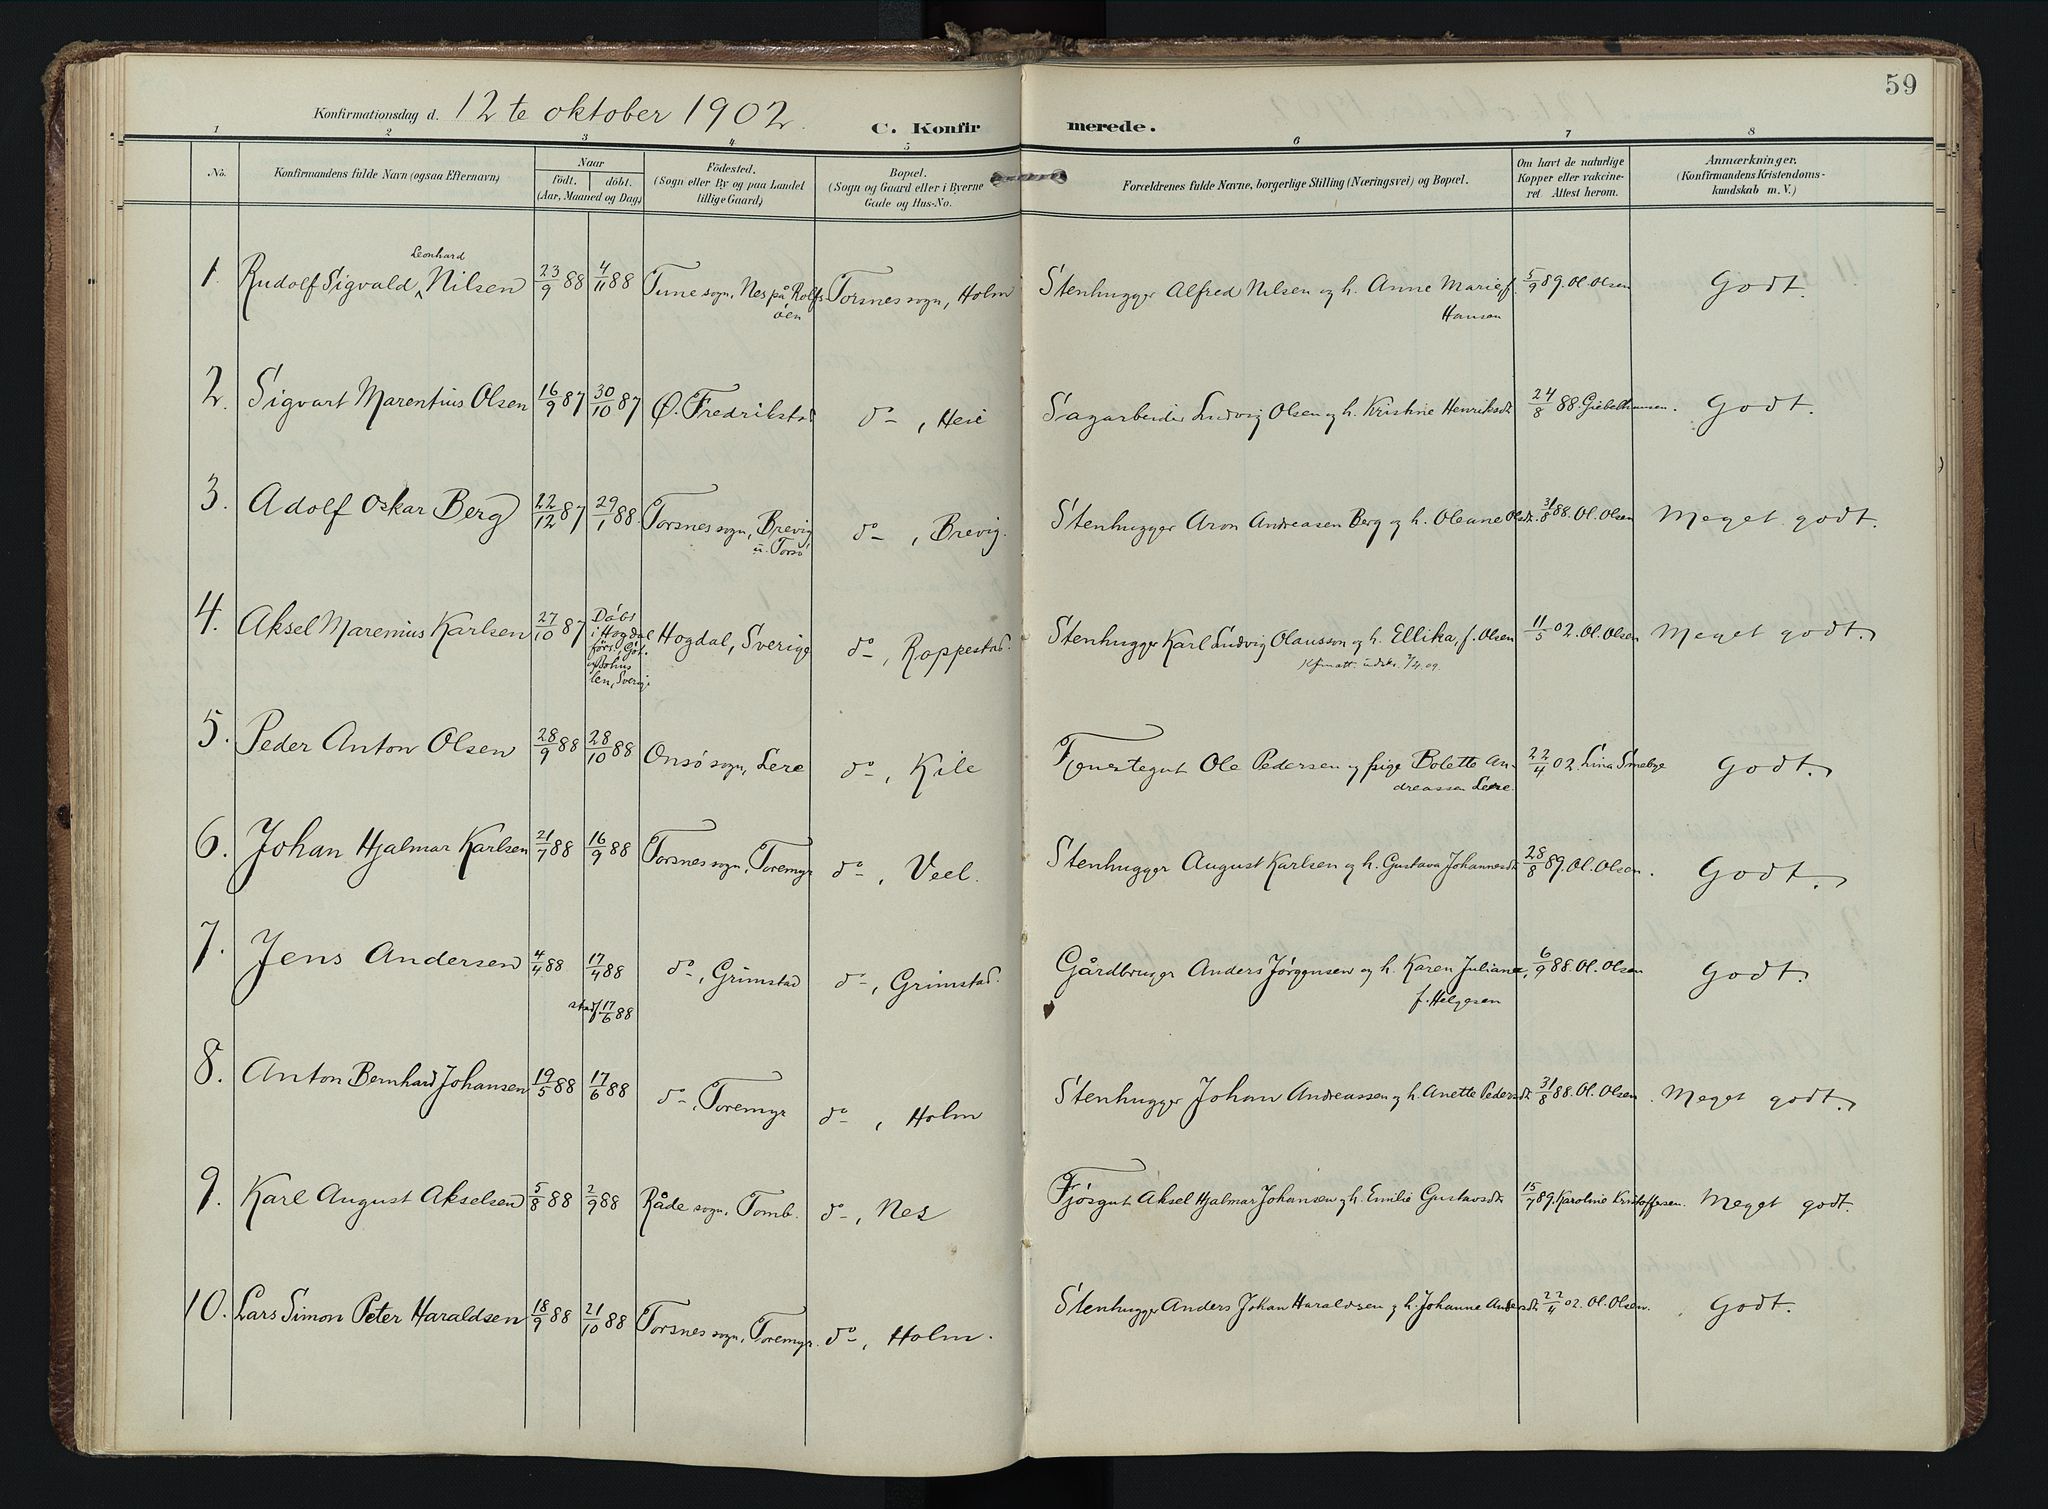 59
Konfirmationsdag d. 12te oktober 1902.
C. Konfirmerede.
1 2 3 4 5 6 7 8
No.
Konfirmandens fulde Navn (ogsaa Efternavn)
Naar
födt. döbt.
(Aar, Maaned og Dag)
Födested.
(Sogn eller By og paa Landet
tillige Gaard)
Bopæl.
(Sogn og Gaard eller i Byerne
Gade og Hus-No.
Forældrenes fulde Navne, borgerlige Stilling (Næringsvei) og Bopæl.
Om havt de naturlige
Kopper eller vakcine-
ret Attest herom.
Anmærkninger.
(Konfirmandens Kristendoms-
kundskab m. V.)
Leonhard
1. Rudolf Sigvald ^ Nilsen 23/9 88 4/11 88 Tune sogn, Nes på Rolfs Torsnes sogn, Holm Stenhugger Alfred Nilsen og h. Anne Marie f. 5/9 89. Ol. Olsen Godt.
öen Hansen
2. Sigvart Marentius Olsen 16/9 87 30/10 87 Ø. Fredrikstad do, Heie Sagarbeider Ludvig Olsen og h. Kristine Henriksdt. 24/8 88. Giebelhausen. Godt.
3. Adolf Oskar Berg 22/12 87 29/1 88. Torsnes sogn, Brevig do, Brevig. Stenhugger Aron Andreasen Berg og h. Oleane Olsdt. 31/8 88. Ol. Olsen Meget godt.
u. Torsö
4. Aksel Maremius Karlsen 27/10 87 Döbt Hogdal, Sverige do, Roppestad. Stenhugger Karl Ludvig Olausson og h. Ellika, f. Olsen 11/5 02. Ol. Olsen Meget godt.
i Hogdal
förs., Göt.
og Bohus
len, Sverig.
udskr. 7/4.09
5. Peder Anton Olsen 28/9 88 28/10 88 Onsö sogn, Lere do, Kile Tjenestegut Ole Pedersen og pige Bolette An- 22/4 02. Lina Smebye Godt.
dreassen Leere.
6. Johan Hjalmar Karlsen 21/7 88 16/9 88 Torsnes sogn, Toremyr do, Veel. Stenhugger August Karlsen og h. Gustava Johannesdt. 28/8 89. Ol. Olsen. Godt.
7. Jens Andersen 4/4 88 17/4 88 do, Grimstad do, Grimstad. Gårdbruger Anders Jörgensen og h. Karen Juliane, 6/9 88. Ol. Olsen Godt.
stadf. 17/6 88 f. Helgesen
8. Anton Bernhard Johansen 19/5 88 17/6 88 do, Toremyr do, Holm Stenhugger Johan Andreassen og h. Anette Pedersdt. 31/8 88. Ol. Olsen. Meget godt.
9. Karl August Akselsen 5/8 88 2/9 88 Råde sogn, Tomb. do, Nes Fjösgut Aksel Hjalmar Johansen og h. Emilie Gustavsdt. 15/7 89. Karoline Kristoffersen. Meget godt.
10. Lars Simon Peter Haraldsen 18/9 88 21/10 88 Torsnes sogn, Toremyr. do, Holm. Stenhugger Anders Johan Haraldsen og h. Johanne Andersdt. 22/4 02. Ol. Olsen. Godt.